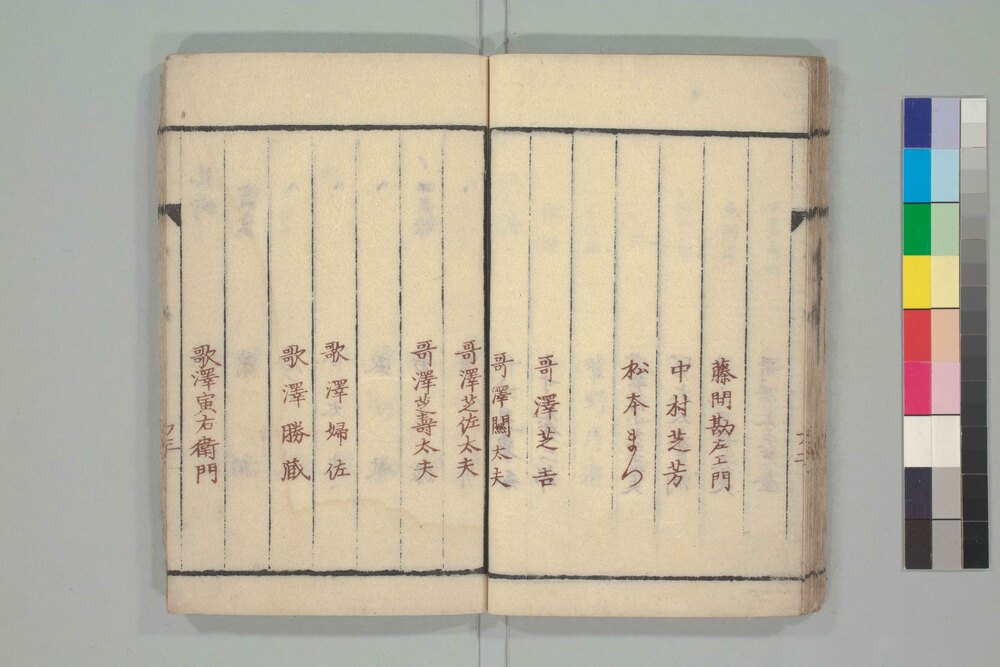 藤間勘左エ門
中村芝芳
松本まつ
哥澤芝吉
哥澤関太夫
哥澤芝佐太夫
哥澤芝壽太夫
歌澤婦佐
歌澤勝蔵
歌澤寅右衛門